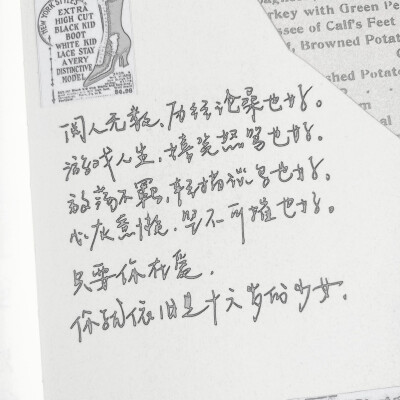 NEW YORK STYLE
EXTRA
HIGH CUT
BLACK KID
BOOT
WHITE KID
LACE STAY
A VERY
DISTINCTIVE
MODEL
rkey with Green Pe
ssee of Calf's Feet
f, Browned Potat
shed Potato
阅人无数,历经沧桑也好。
游戏人生,嬉笑怒骂也好。
放荡不羁,轻描淡写也好。
心灰意懒,坚不可摧也好。
只要你在爱,
你就依旧是十六岁的少女。